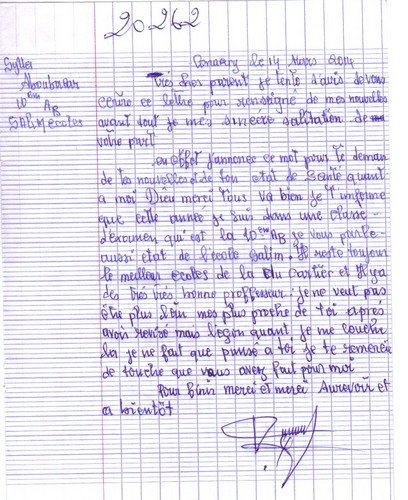 20262
Sylla
Aboubacar
10ème AB
SALIM ecoles
Conacry le 14 Mars 2014
très cher parent je tente d'avis de vous
ecrire ce lettre pour renseigné de mes nouvelles
avant tout je mes sincere salitation de
votre part
en effet j'annonce ce mot pour te deman
de tes nouvelles et de ton etat de santé quant
a moi Dieu merci tous va bien je t'informe
que cette année je suis dans une classe
d'examen qui est la 10ème AB je vous parle
aussi etat de l'ecole Salim. Il reste toujour
le meilleur ecoles de la du cartier et il ya
des très très bonne proffesseur. je ne veut pas
être plus loin mes plus proche de toi après
avoir revisé mais leçon quant je me couche
la je ne fait que pensé a toi je te remercie
de touche que vous avez fait pour moi
Pour finir merci et merci Aurevoir et
a bientôt